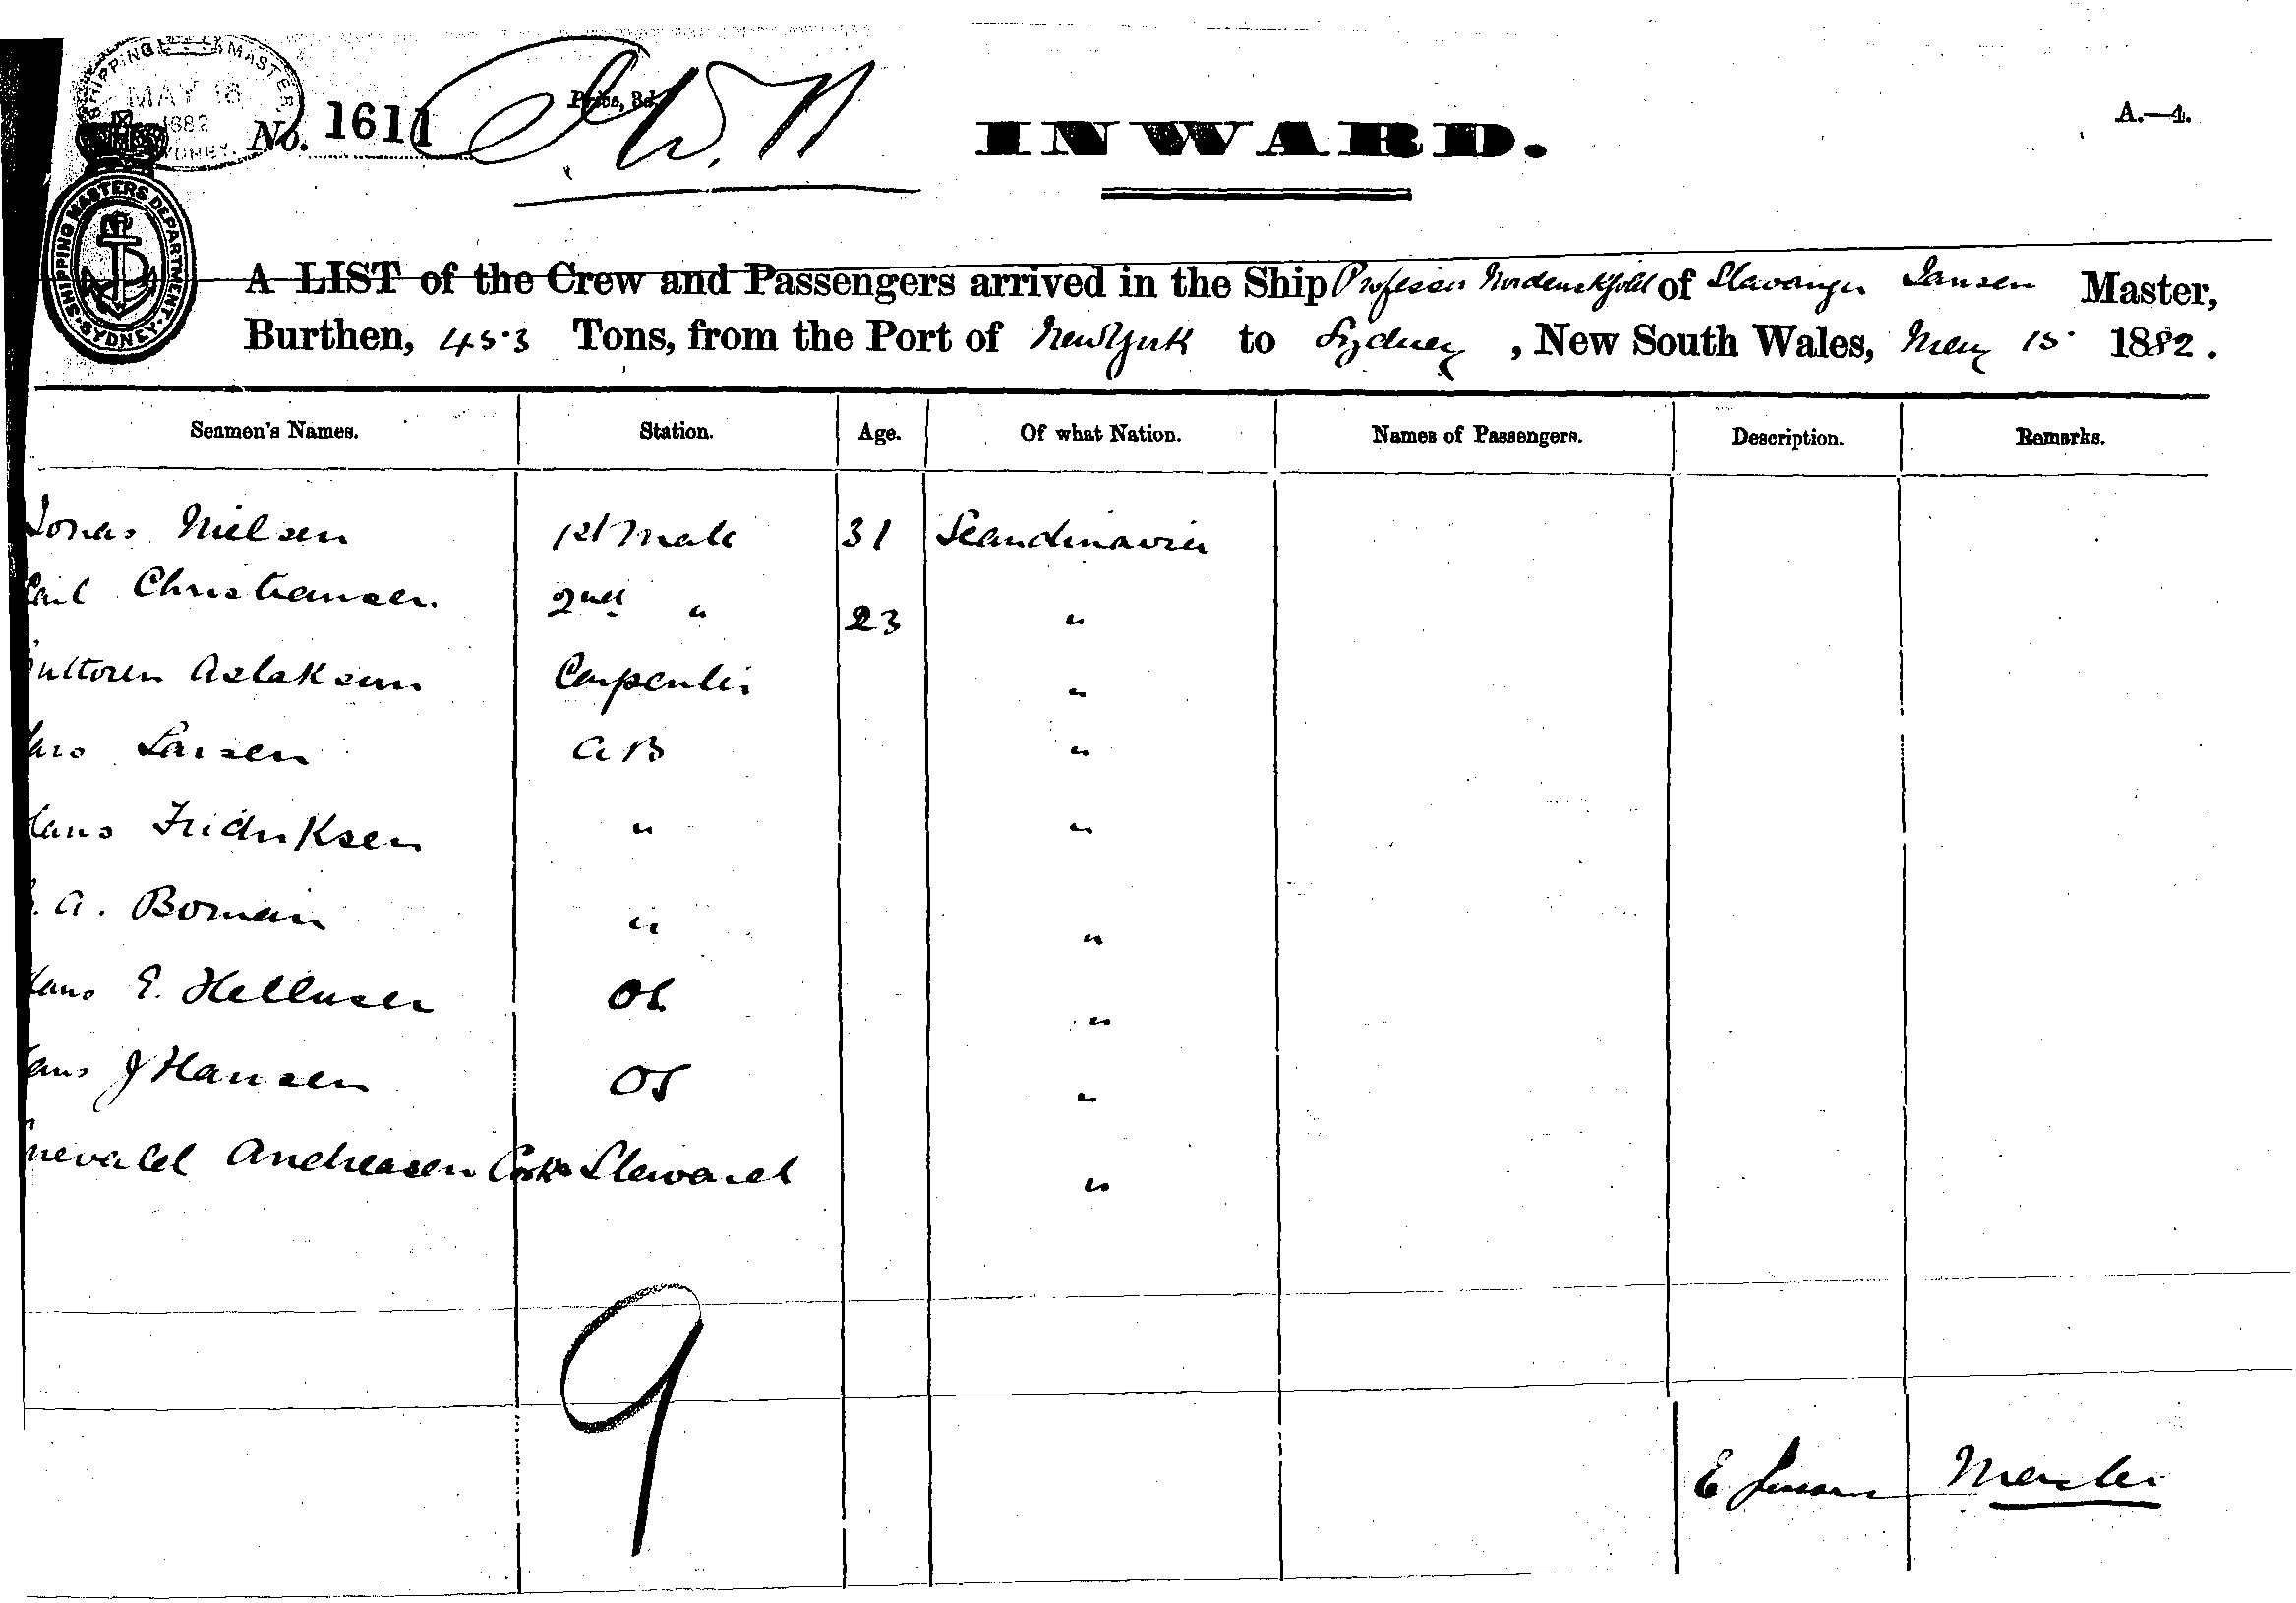 SHIPPING MASTER
MAY 16
1882
SYDNEY.
No. 1611
Price, 3d.
INWARD.
A.—4.
SHIPPING MASTERS DEPARTMENT · SYDNEY ·
A LIST of the Crew and Passengers arrived in the Ship Professor Nordenskjold of Stavanger Jansen Master,
Burthen, 453 Tons, from the Port of New York to Sydney, New South Wales, May 15 1882.
Seamen's Names. Station. Age. Of what Nation. Names of Passengers. Description. Remarks.
Jonas Nielsen 1st Mate 31 Scandinavia
Carl Christiansen. 2nd " 23 "
Aslaksen Carpenter "
Lars Larsen A B "
Hans Fridriksen " "
A. Boman " "
Hans E. Hellusen OS "
Hans J Hansen OS "
Enevald Andreasen Cook Steward "
9
E Jansen Master